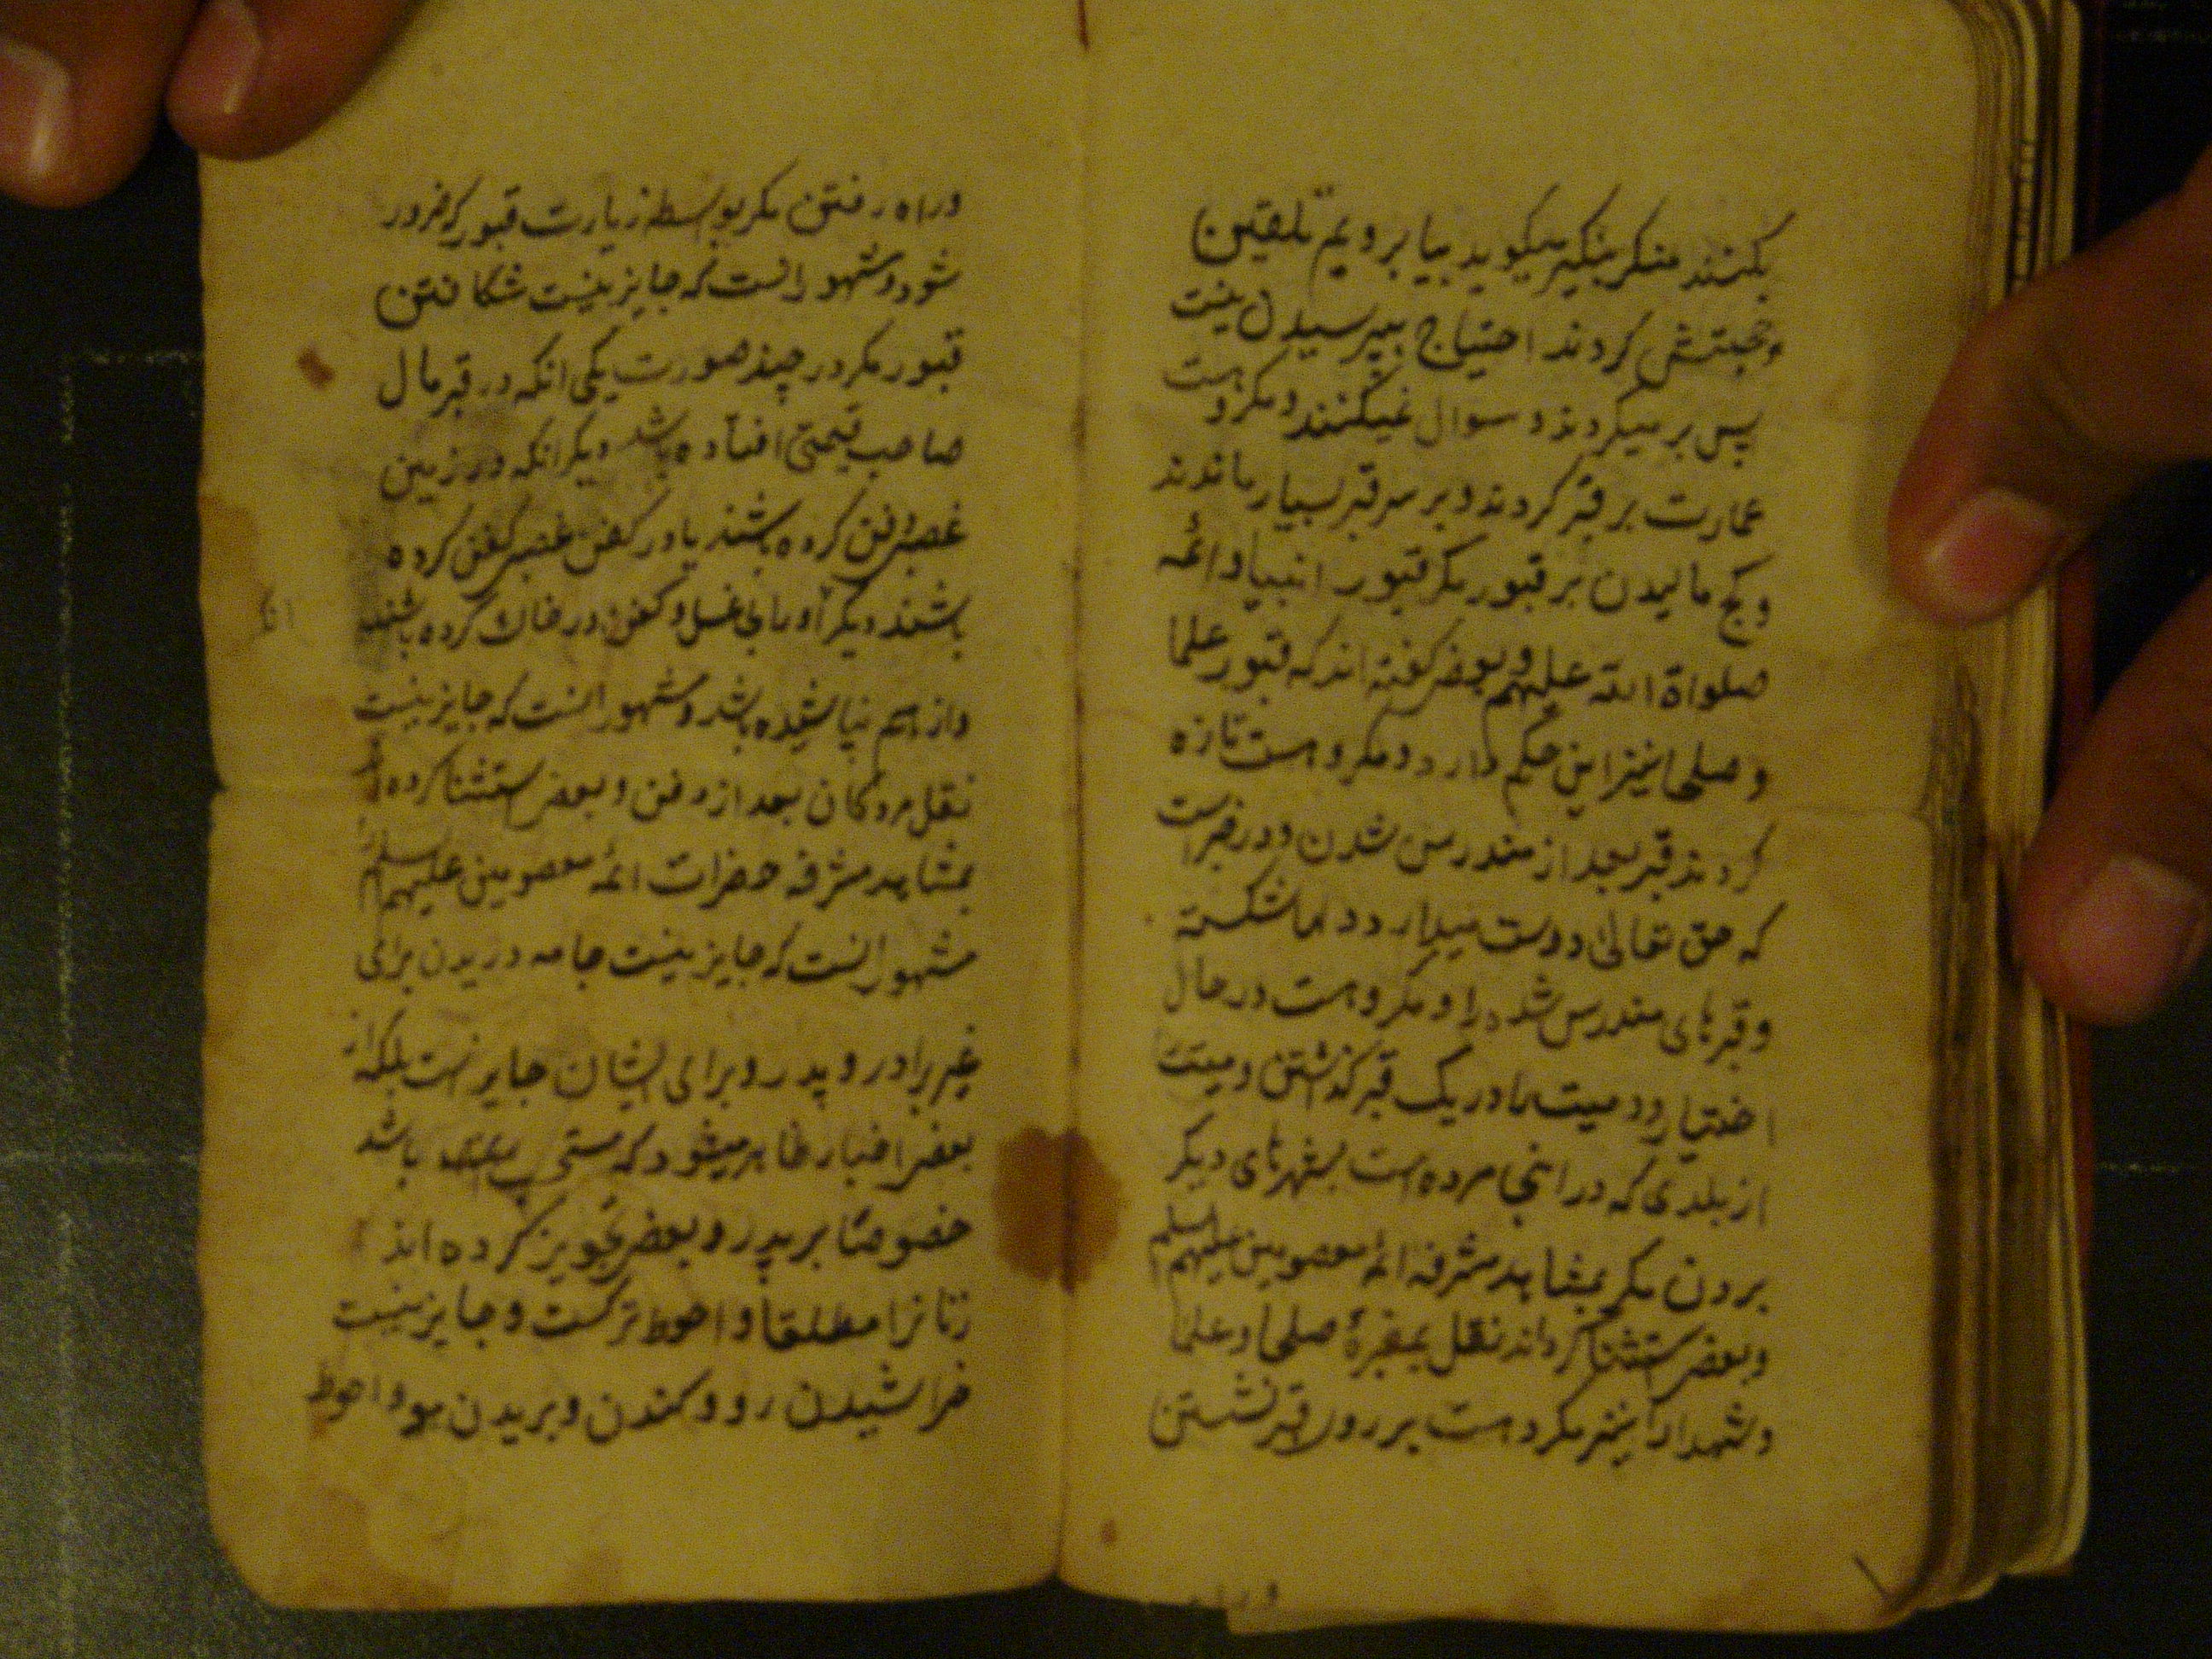 بکنند منکر بنکیر میکوید بیا برویم تلقین
حجتش کردند احتیاج بپرسیدن نیست
پس بر میکردند و سوال نمیکنند و مکروهست
عمارت بر قبر کردند و بر سر قبر بسیار ماندند
و کچ مالیدن بر قبور مکر قبور انبیا و ائمه
صلواة الله علیهم و بعضی کفته اند که قبور علما
و صلحا نیز این حکم دارد و مکروهست تازه
کردند قبر بعد از مندرس شدن و در خبرست
که حق تعالی دوست میدارد دلها شکسته
و قبرهای مندرس شده را و مکروهست در حال
اختیار دو میت را در یک قبر کذاشتن و میت
از بلدی که در انجا مرده است بشهرهای دیکر
بردن مکر بمشاهد مشرفه ائمه معصومین علیهم السلم
و بعضی استثنا کرداند نقل بمقبرهٔ صلحا و علما
و شهدا را نیز مکروهست بر روی قبر نشستن
وراه
وراه رفتن مکر بواسطه زیارت قبور که ضرور
شود و مشهور انست که جایز نیست شکافتن
قبور مکر در چند صورت یکی انکه در قبر مال
صاحب قیمتی افتاده باشد دیکر انکه در زمین
غصبی دفن کرده باشند یا در کفن غصبی کفن کرده
باشند دیکر او را بی غسل و کفن در خاک کرده باشند
و از هم نپاشیده باشد و مشهور انست که جایز نیست
نقل مردکان بعد از دفن و بعضی استثنا کرده اند
بمشاهد مشرفه حضرات ائمهٔ معصومین علیهم السلم
مشهور انست که جایز نیست جامه دریدن برای
غیر برادر و پدر و برای ایشان جایز است بلکه از
بعضی اخبار ظاهر میشود که مستحب باشد
خصوصًا بر پدر و بعضی تجویز کرده اند
زنانرا مطلقا و احوط ترکست و جایز نیست
خراشیدن رو و کندن و بریدن مو و احوط